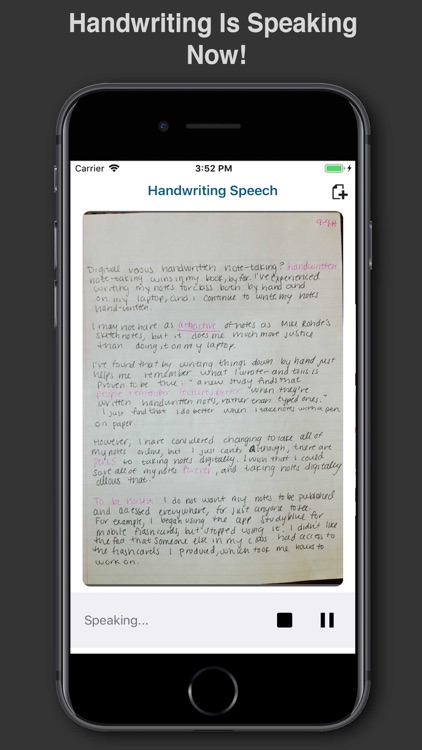 Handwriting Is Speaking
Now!
Carrier
3:52 PM
Handwriting Speech
Digital versus handwritten note-taking? handwritten
note-taking wins in my book, by far. I've experienced
writing my notes for class both by hand and
on my laptop, and i continue to write my notes
hand-written.
I may not have as attractive of notes as Mike Rohde's
sketchnotes, but it does me much more justice
than doing it on my laptop.
I've found that by writing things down by hand just
helps me remember what I wrote- and this is
proven to be true: "a new study finds that
people remember lectures better when they've
written handwritten notes, rather than typed ones."
I just find that I do better when I take notes with a pen
on paper.
However, I have considered changing to take all of
my notes online, but I just can't. Although, there are
to taking notes digitally. I wish that I could
save all of my notes, and taking notes digitally
allows that."
To be honest I do not want my notes to be published
and accessed everywhere, for just anyone to see.
For example, I began using the app studyblue for
mobile flashcards, but stopped using it. I didn't like
the fact that someone else in my class had access to
the flashcards I produced, which took me hours to
work on.
Speaking...